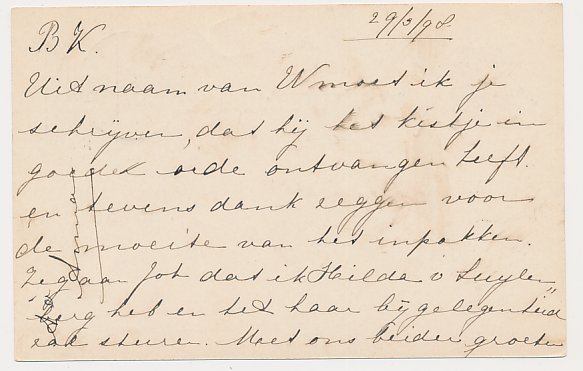 29/3/98
B K.
Uit naam van W moet ik je
schrijven, dat hij het kistje in
goede orde ontvangen heeft.
en tevens dank zeggen voor
de moeite van het inpakken.
Zeg aan Jot dat ik Hilda v Suylen„
berg heb en het haar bij gelegenheid
zal sturen. Met ons beider groeten